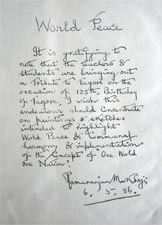 World Peace
It is gratifying to
note that the teachers &
students are bringing out
a tribute to Tagore on the
occasion of 125th Birthday
of Tagore. I wish this
endeavour should concentrate
on paintings & sketches
intended to highlight
World Peace & Communal
harmony & implementation
of the Concept of One World
One Nation.
6. 5. 86.